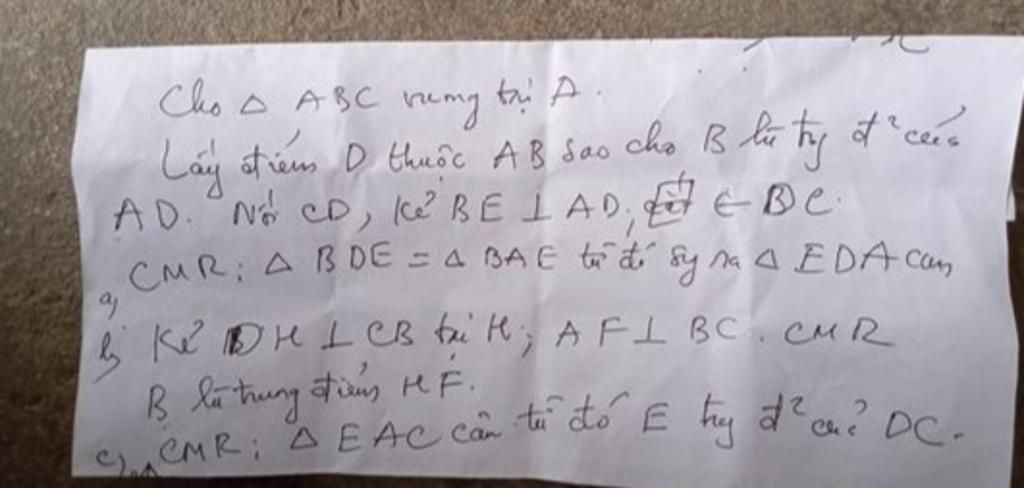 Cho Δ ABC vuông tại A.
Lấy điểm D thuộc AB sao cho B là tg đ² của
AD. Nối CD, Kẻ BE ⊥ AD, E ∈ DC.
a, CMR: Δ BDE = Δ BAE từ đó suy ra Δ EDA cân
b, Kẻ DH ⊥ CB tại H; AF ⊥ BC. CMR
B là trung điểm HF.
c, CMR: Δ EAC cân từ đó E tg đ² của DC.